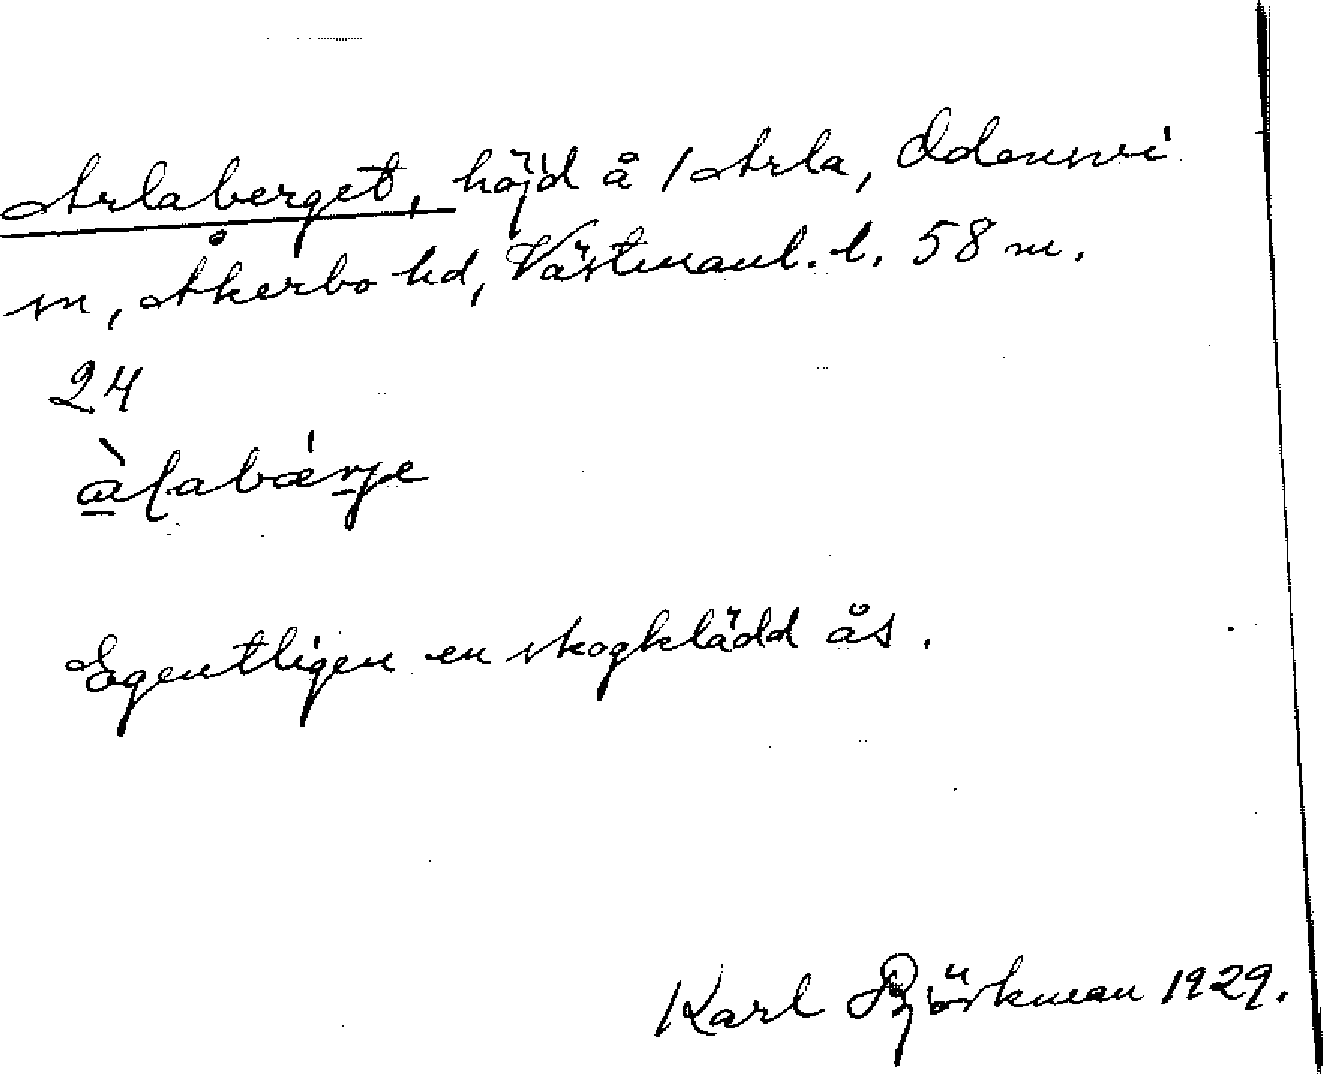 Arlaberget, höjd å /Arla, Odensvi
sn, Åkerbo hd, Västmanl. l. 58 m.
24
Egentligen en skogklädd ås.
Karl Björkman 1929.